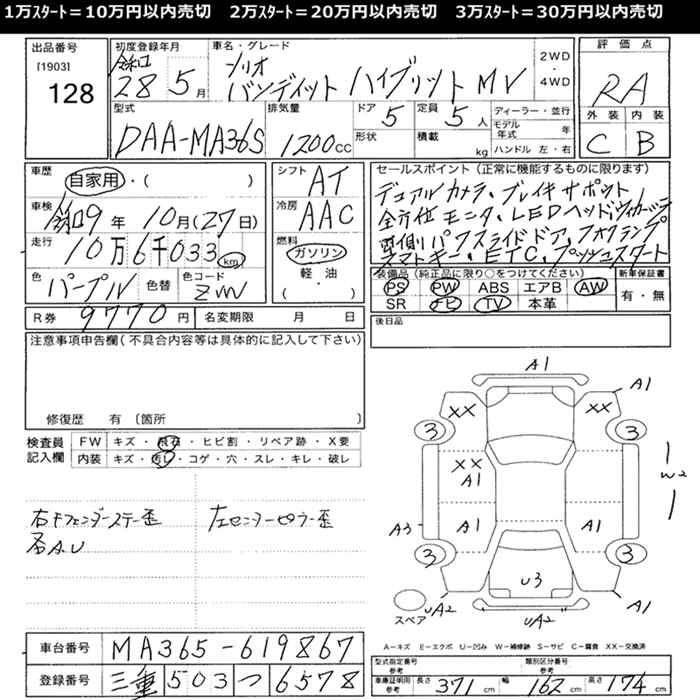 1万ｽﾀｰﾄ＝10万円以内売切　2万ｽﾀｰﾄ＝20万円以内売切　3万ｽﾀｰﾄ＝30万円以内売切
出品番号
[1903]
128
初度登録年月
令和
28年5月
車名・グレード
ソリオ
バンディット ハイブリット MV
2WD
4WD
評価点
RA
外装 内装
C B
型式
DAA-MA36S
排気量
1200cc
ドア
5
形状
定員
5人
積載
kg
ディーラー・並行
モデル年式 年
ハンドル 左・右
車歴
自家用・( )
車検
令和9年 10月(27日)
走行
10万6千033km
色
パープル
色替
色コード
ZVV
シフト
AT
冷房
AAC
燃料
ガソリン
軽・油
( )
セールスポイント（正常に機能するものに限ります）
デュアルカメラ・ブレイキサポット
全方位モニタ・LEDヘッド
両側パワスライドドア、フォグランプ
スマートキー・ETC、プッシュスタート
装備品（純正品に限り○をつけてください）
PS PW ABS エアB AW
SR ナビ TV 本革
新車保証書
有・無
R券 9770円
名変期限 月 日
後日品
注意事項申告欄(不具合内容等は具体的に記入して下さい)
修復歴 有〔箇所 〕
検査員
記入欄
FW キズ・飛石・ヒビ割・リペア跡・X要
内装 キズ・汚レ・コゲ・穴・スレ・キレ・破レ
右Fフェンダーステー歪
左センターピラー歪
A,U
A1
A1
XX
XX
3
3
XX
A1
W2
A3
A1
A1
3
3
U3
スペア
UA2
UA2
A1
A－キズ E－エクボ U－凹み W－補修跡 S－サビ C－腐食 XX－交換済
車台番号 MA36S-619867
登録番号 三重 503 つ 6578
型式指定番号
参考
類別区分番号
参考
車庫証明用
参考
長さ 371cm 幅 162cm 高さ 174cm